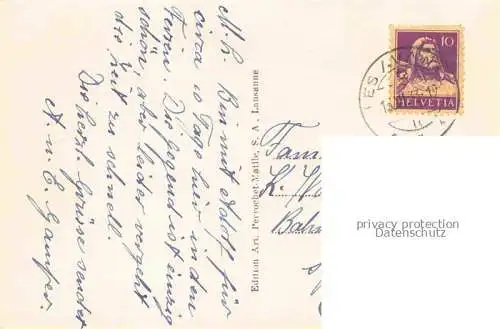 M. L. Bin mit Adolf für
circa 10 Tage hier in den
Ferien. Die Gegend ist einzig
schön, aber leider vergeht
die Zeit zu schnell.
Die herzl. Grüsse sendet
A. u. E.
Edition Art. Perrochet-Matile, S. A., Lausanne
10
HELVETIA
Fam
Bahn
privacy protection
Datenschutz